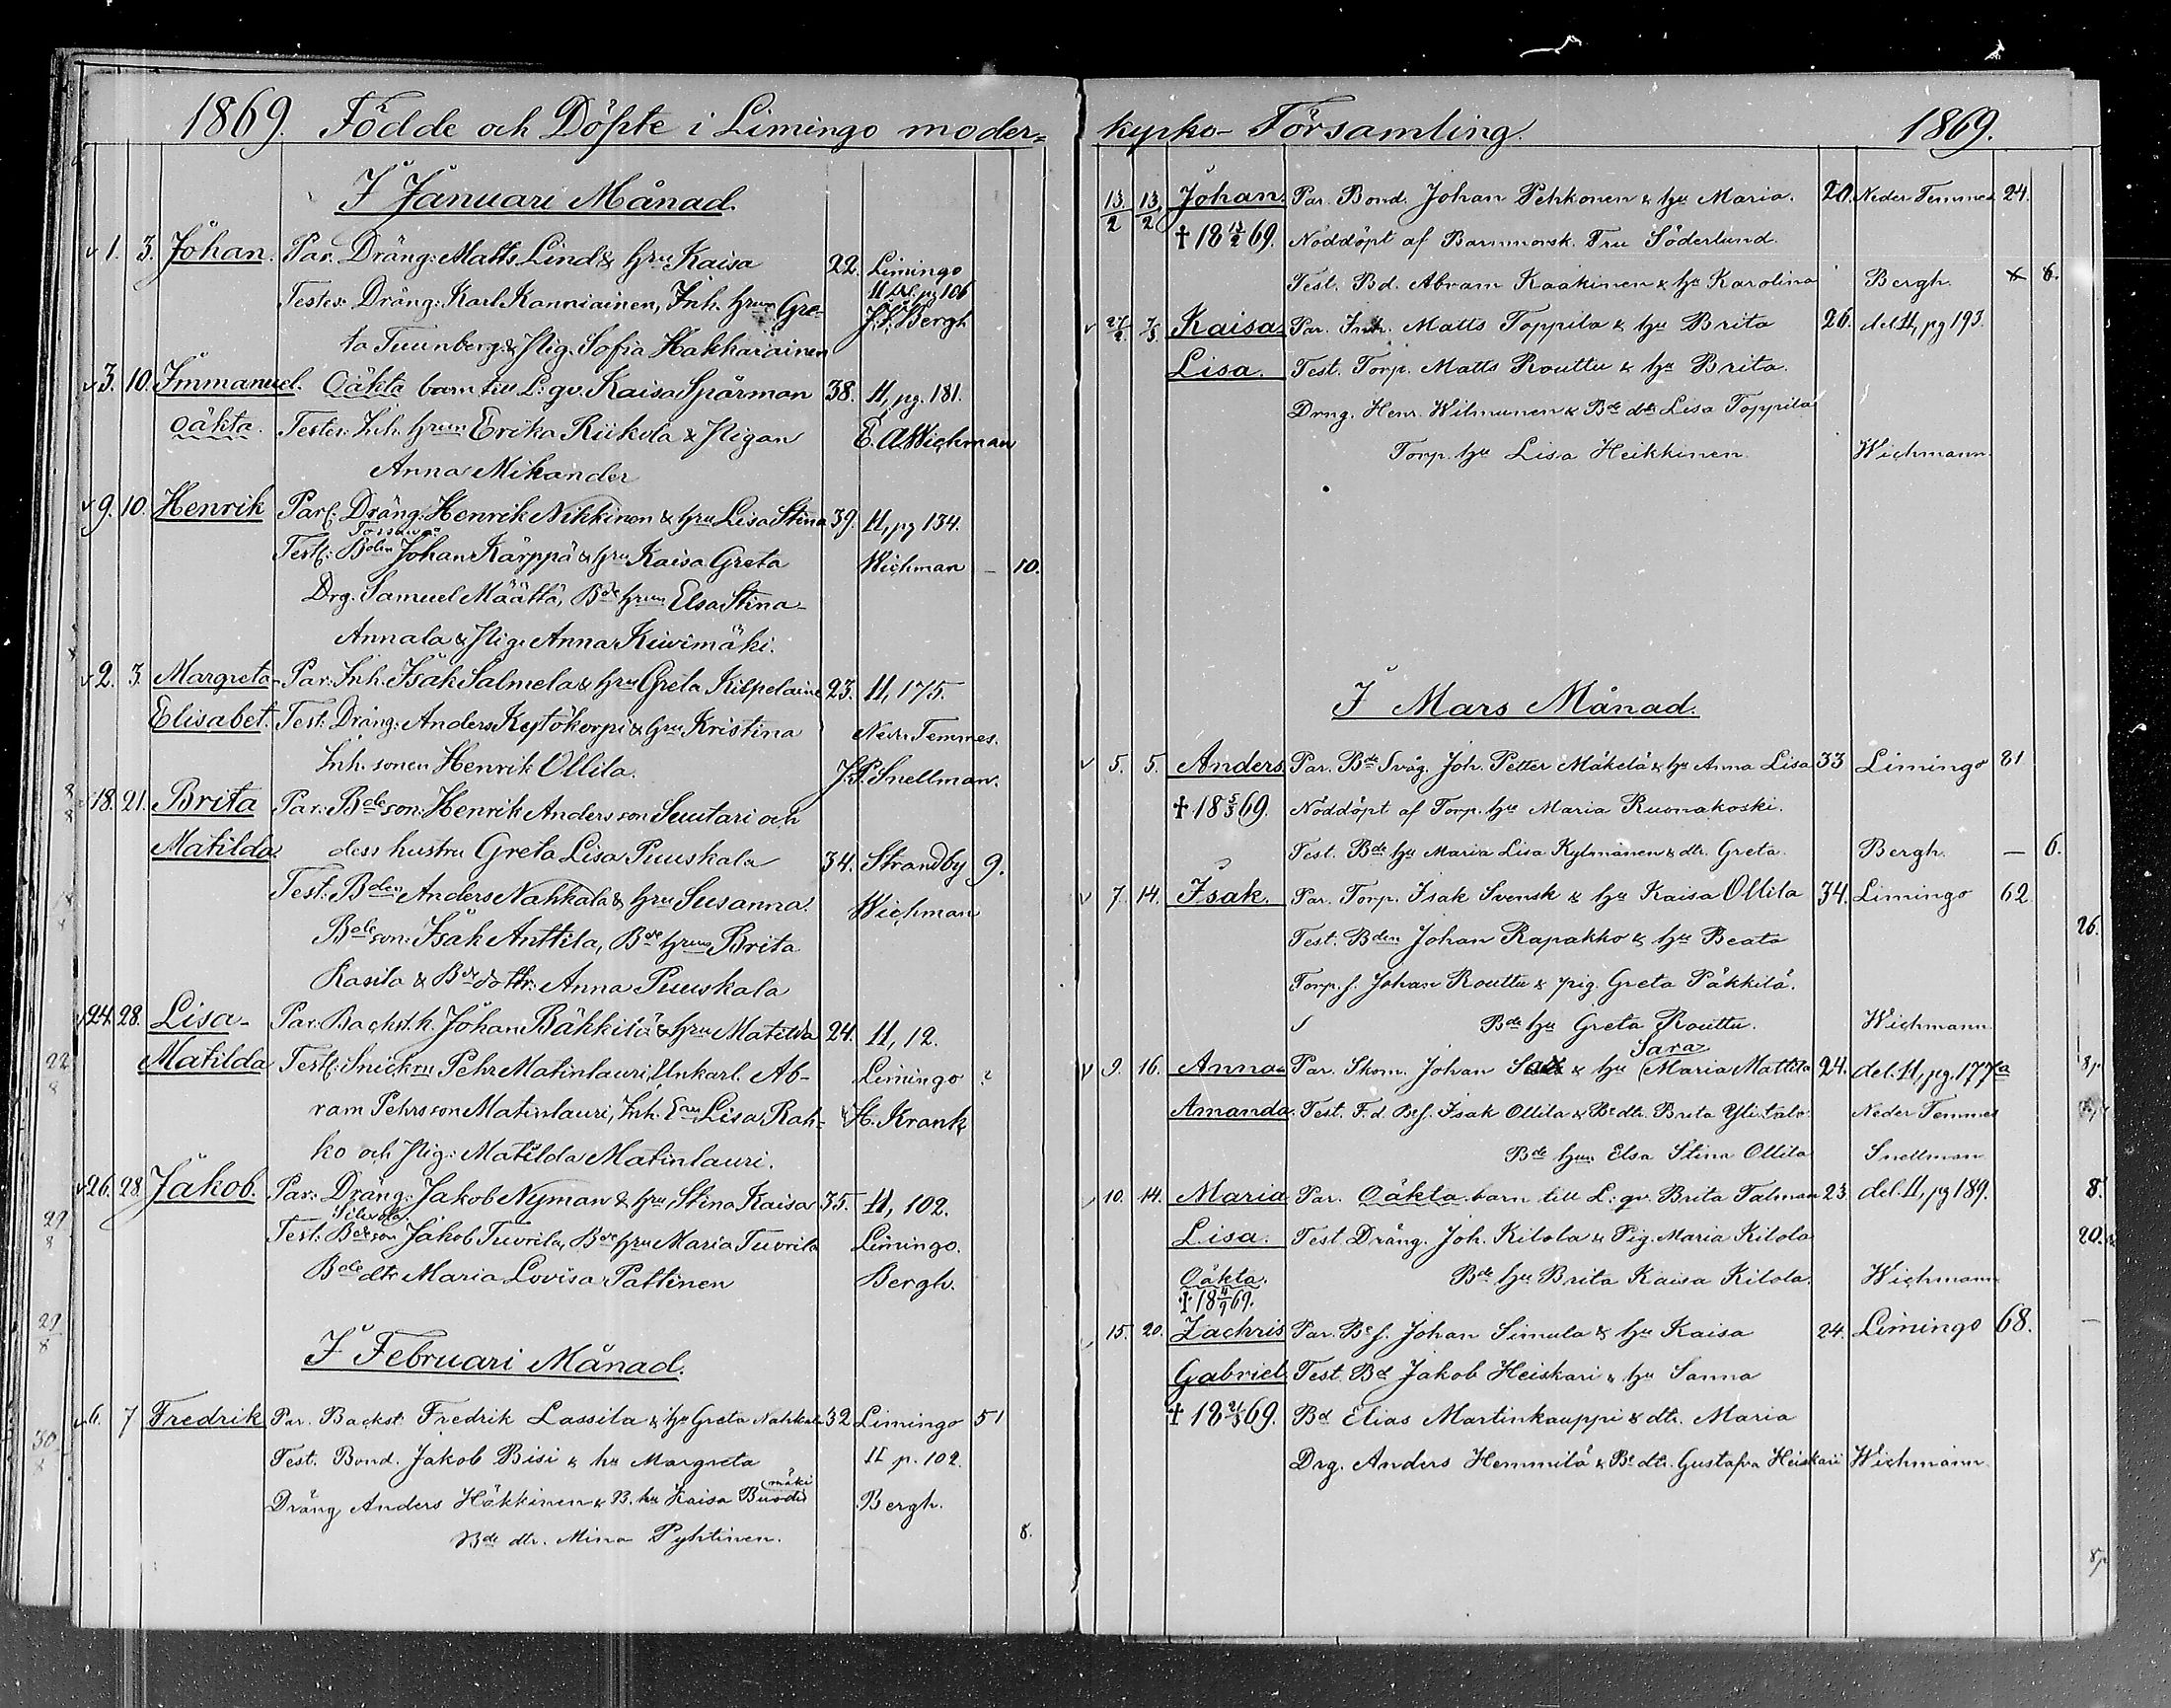 1869. Födde och Döpte i Limingo moder-
I Januari Månad.
v 1. 3. Johan. Par. Dräng: Matts Lind & hru Kaisa 22. Limingo
Testes: Dräng: Karl Kanniainen, Inh. hrun Gre- II del. pg 106
ta Tuunberg & Pig. Sofia Hakkarainen J. F. Bergh
v 3. 10. Immanuel. Oäkta barn till L: qv. Kaisa Spårman 38. II, pg. 181.
oäkta. Testes: Inh. hrun Erika Riikola & Pigan E. A. Wichman
Anna Mikander
v 9. 10. Henrik Par: Dräng: Henrik Nikkinen & hru Lisa Stina 39. II, pg 134.
Test: Bden Johan Kärppä & hru Kaisa Greta Wichman – 10.
Drg. Samuel Määttä, Bde hrun Elsa Stina
Annala & Pig. Anna Kiwimäki.
v 2. 3. Margreta- Par: Inh. Isak Salmela & hru Greta Kilpelaine 23. II, 175.
Elisabet. Test: Dräng: Anders Kytökorpi & hru Kristina Neder Temmes.
Inh. sonen Henrik Ollila. J. P. Snellman.
18. 21. Brita Par: Bde son: Henrik Andersson Suutari och
Matilda. dess hustru Greta Lisa Puuskala 34. Strandby 9.
Test: Bden Anders Nahkala & hru Susanna. Wichman
Bde son: Isak Anttila, Bde hrun Brita
Kasila & Bde dottr: Anna Puuskala
v 24. 28. Lisa- Par: Backst.k. Johan Bäkkilä & hru Matilda 24. II, 12.
Matilda Test: Snick Pehr Matinlauri, Unkarl. Ab- Limingo
ram Pehrsson Matinlauri, Inh. Lisa Rah- H. Krank
ko och Pig: Matilda Matinlauri.
v 26. 28. Jakob. Par: Dräng: Jakob Nyman & hru Stina Kaisa 35. II, 102.
Test: Bde son Jakob Tuvrila, Bde hru Maria Tuvrila Limingo.
Bde dtr Maria Lovisa Pattinen Bergh.
I Februari Månad.
v 6. 7 Fredrik Par. Backst. Fredrik Lassila & hu Greta Nahkala 32 Limingo 51
Test. Bond. Jakob Bisi & hu Margreta II p. 102.
mäki
Dräng Anders Häkkinen & B. hu Kaisa Bergh.
Bde dtr. Mina Pyhtinen. 8.
kyrko- Församling. 1869.
13/2 13/2 Johan. Par. Bond. Johan Pehkonen & hu Maria. 20. Neder Temmes 24.
† 18 13/2 69. Nöddöpt af Barnmorsk. Fru Söderlund.
Test. Bd. Abram Kaakinen & hu Karolina Bergh. 6.
v 27/2 7/3 Kaisa Par. Inh. Matts Toppila & hu Brita 26. del. II, pg 193.
Lisa. Test. Torp. Matts Routtu & hu Brita.
Drng. Henr. Wilmunen & Bde dtr Lisa Toppila
Torp. hu Lisa Heikkinen. Wichmann
I Mars Månad.
v 5. 5. Anders Par. Bde Svåg. Joh. Petter Mäkelä & hu Anna Lisa 33 Limingo 81
† 18 5/3 69. Nöddöpt af Torp. hu Maria Ruonakoski.
Test. Bde hu Maria Lisa Kylmänen & dtr. Greta. Bergh. — 6.
v 7. 14. Isak. Par. Torp. Isak Svensk & hu Kaisa Ollila 34. Limingo 62.
Test. Bden Johan Rapakko & hu Beata 26.
Torp. s. Johan Routtu & pig. Greta Päkkilä.
Bde hu Greta Routtu. Wichmann
Sara
v 9. 16. Anna Par. Skom. Johan Sax & hu (Maria Mattila 24. del. II, pg. 177a
Amanda. Test. F.d. Bs. Isak Ollila & Bde dtr. Brita Ylitalo Neder Temmes
Bde hun Elsa Stina Ollila Snellman
10. 14. Maria Par. Oäkta barn till L: qv. Brita Talman 23. del. II, pg 189. 8.
Lisa. Test. Dräng. Joh. Kilola & Pig. Maria Kilola 20.
Oäkta. Bde hu Brita Kaisa Kilola. Wichmann
† 18 4/9 69.
15. 20. Zachris Par. Bs. Johan Simula & hu Kaisa 24. Limingo 68.
Gabriel Test. Bd Jakob Heiskari & hu Sanna
† 18 21/3 69. Bd Elias Martinkauppi & dtr. Maria
Drg. Anders Hemmilä & Bde dtr. Gustafva Heiskari Wichmann